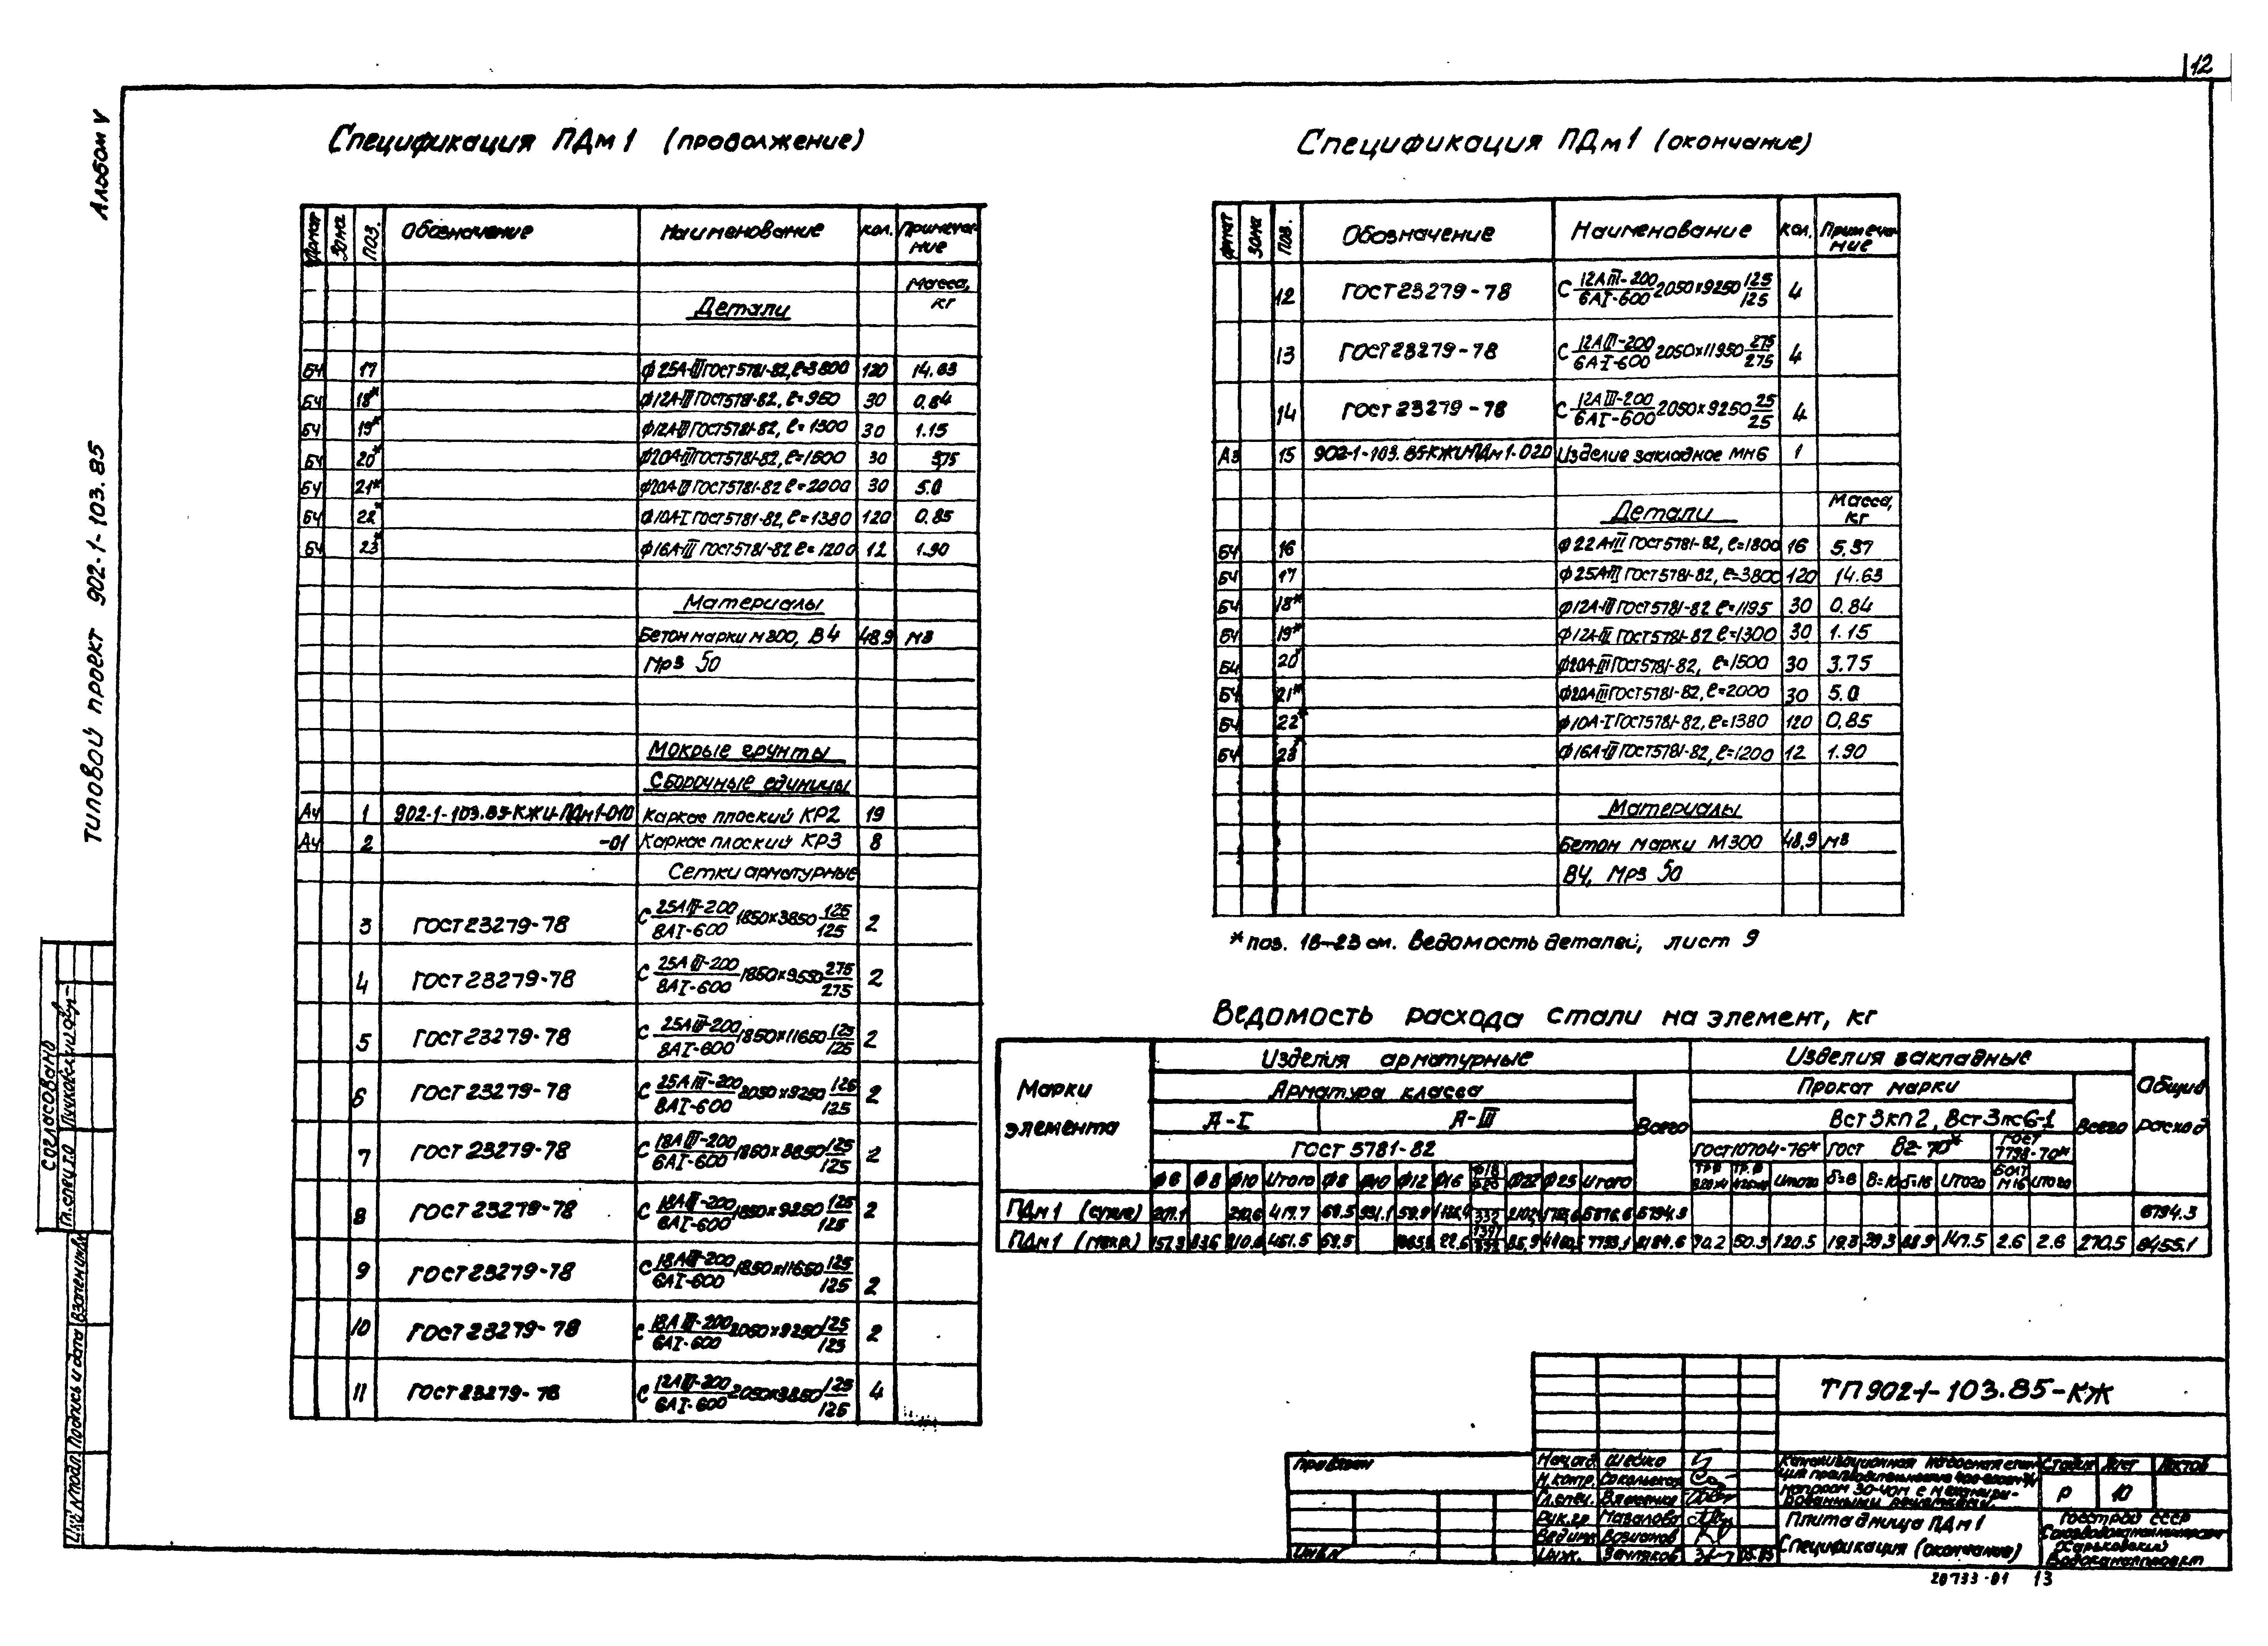 12
Альбом V
Типовой проект 902-1-103.85
Спецификация ПДм1 (продолжение)
Формат Зона Поз. Обозначение Наименование Кол. Примечание
Масса, кг
Детали
БЧ 17 ф25А-III ГОСТ5781-82, ℓ=3800 120 14.63
БЧ 18* ф12А-III ГОСТ5781-82, ℓ=950 30 0.84
БЧ 19* ф12А-III ГОСТ5781-82, ℓ=1300 30 1.15
БЧ 20* ф20А-III ГОСТ5781-82, ℓ=1500 30 3,75
БЧ 21* ф20А-III ГОСТ5781-82 ℓ=2000 30 5.0
БЧ 22* ф10А-I ГОСТ5781-82, ℓ=1380 120 0.85
БЧ 23* ф16А-III ГОСТ5781-82 ℓ=1200 12 1.90
Материалы
Бетон марки М300, В4 48.9 м3
Мрз 50
Мокрые грунты
Сборочные единицы
А4 1 902-1-103.85-КЖИ-ПДм1-010 Каркас плоский КР2 19
А4 2 -01 Каркас плоский КР3 8
Сетки арматурные
3 ГОСТ23279-78 С 25АIII-200/8АI-600 1850х3850 125/125 2
4 ГОСТ23279-78 С 25АIII-200/8АI-600 1850х9550 275/275 2
5 ГОСТ23279-78 С 25АIII-200/8АI-600 1850х11650 125/125 2
6 ГОСТ23279-78 С 25АIII-200/8АI-600 2050х9250 125/125 2
7 ГОСТ23279-78 С 18АIII-200/6АI-600 1850х3850 125/125 2
8 ГОСТ23279-78 С 18АIII-200/6АI-600 1850х9250 125/125 2
9 ГОСТ23279-78 С 18АIII-200/6АI-600 1850х11650 125/125 2
10 ГОСТ23279-78 С 18АIII-200/6АI-600 2050х9250 125/125 2
11 ГОСТ23279-78 С 12АIII-200/6АI-600 2050х3850 125/125 4
Спецификация ПДм1 (окончание)
Формат Зона Поз. Обозначение Наименование Кол. Примечание
12 ГОСТ23279-78 С 12АIII-200/6АI-600 2050х9250 125/125 4
13 ГОСТ23279-78 С 12АIII-200/6АI-600 2050х11950 275/275 4
14 ГОСТ23279-78 С 12АIII-200/6АI-600 2050х9250 25/25 4
А3 15 902-1-103.85-КЖИ-ПДм1-020 Изделие закладное МН6 1
Детали Масса, кг
БЧ 16 ф22А-III ГОСТ5781-82, ℓ=1800 16 5.37
БЧ 17 ф25А-III ГОСТ5781-82, ℓ=3800 120 14.63
БЧ 18* ф12А-III ГОСТ5781-82 ℓ=1195 30 0.84
БЧ 19* ф12А-III ГОСТ5781-82 ℓ=1300 30 1.15
БЧ 20* ф20А-III ГОСТ5781-82, ℓ=1500 30 3.75
БЧ 21* ф20А-III ГОСТ5781-82, ℓ=2000 30 5.0
БЧ 22* ф10А-I ГОСТ5781-82, ℓ=1380 120 0,85
БЧ 23* ф16А-III ГОСТ5781-82, ℓ=1200 12 1.90
Материалы
Бетон марки М300 48,9 м3
В4, Мрз 50
* поз. 18-23 см. Ведомость деталей, лист 9
Ведомость расхода стали на элемент, кг
Марки элемента Изделия арматурные Изделия закладные Общий расход
Арматура класса Всего Прокат марки Всего
А-I А-III Вст3кп2, Вст3пс6-1
ГОСТ 5781-82 ГОСТ10704-76* ГОСТ 82-70* ГОСТ 7798-70*
ф6 ф8 ф10 Итого ф8 ф10 ф12 ф16 ф18 ф20 ф22 ф25 Итого Итого δ=8 Итого Болт М16 Итого
ПДм1 (сухие) 6794.3
ПДм1 (мокр.) 451.5 120.5 147.5 2.6 2.6 270.5 8455.1
Согласовано
Гл.спец.
Инв.№подл. Подпись и дата Взамен инв.№
Привязан
Инв.№
ТП902-1-103.85-КЖ
Нач.отд. Шейко
Н.контр. Сокольская
Гл.спец. Власенко
Рук.гр.
Вед.инж. Возианов
Инж.
Канализационная насосная станция производительностью
напором 30-40м с механизированными решетками
Плита днища ПДм1
Спецификация (окончание)
Стадия Лист Листов
Р 10
Госстрой СССР
Союзводоканалниипроект
Харьковский
Водоканалпроект
20733-01 13